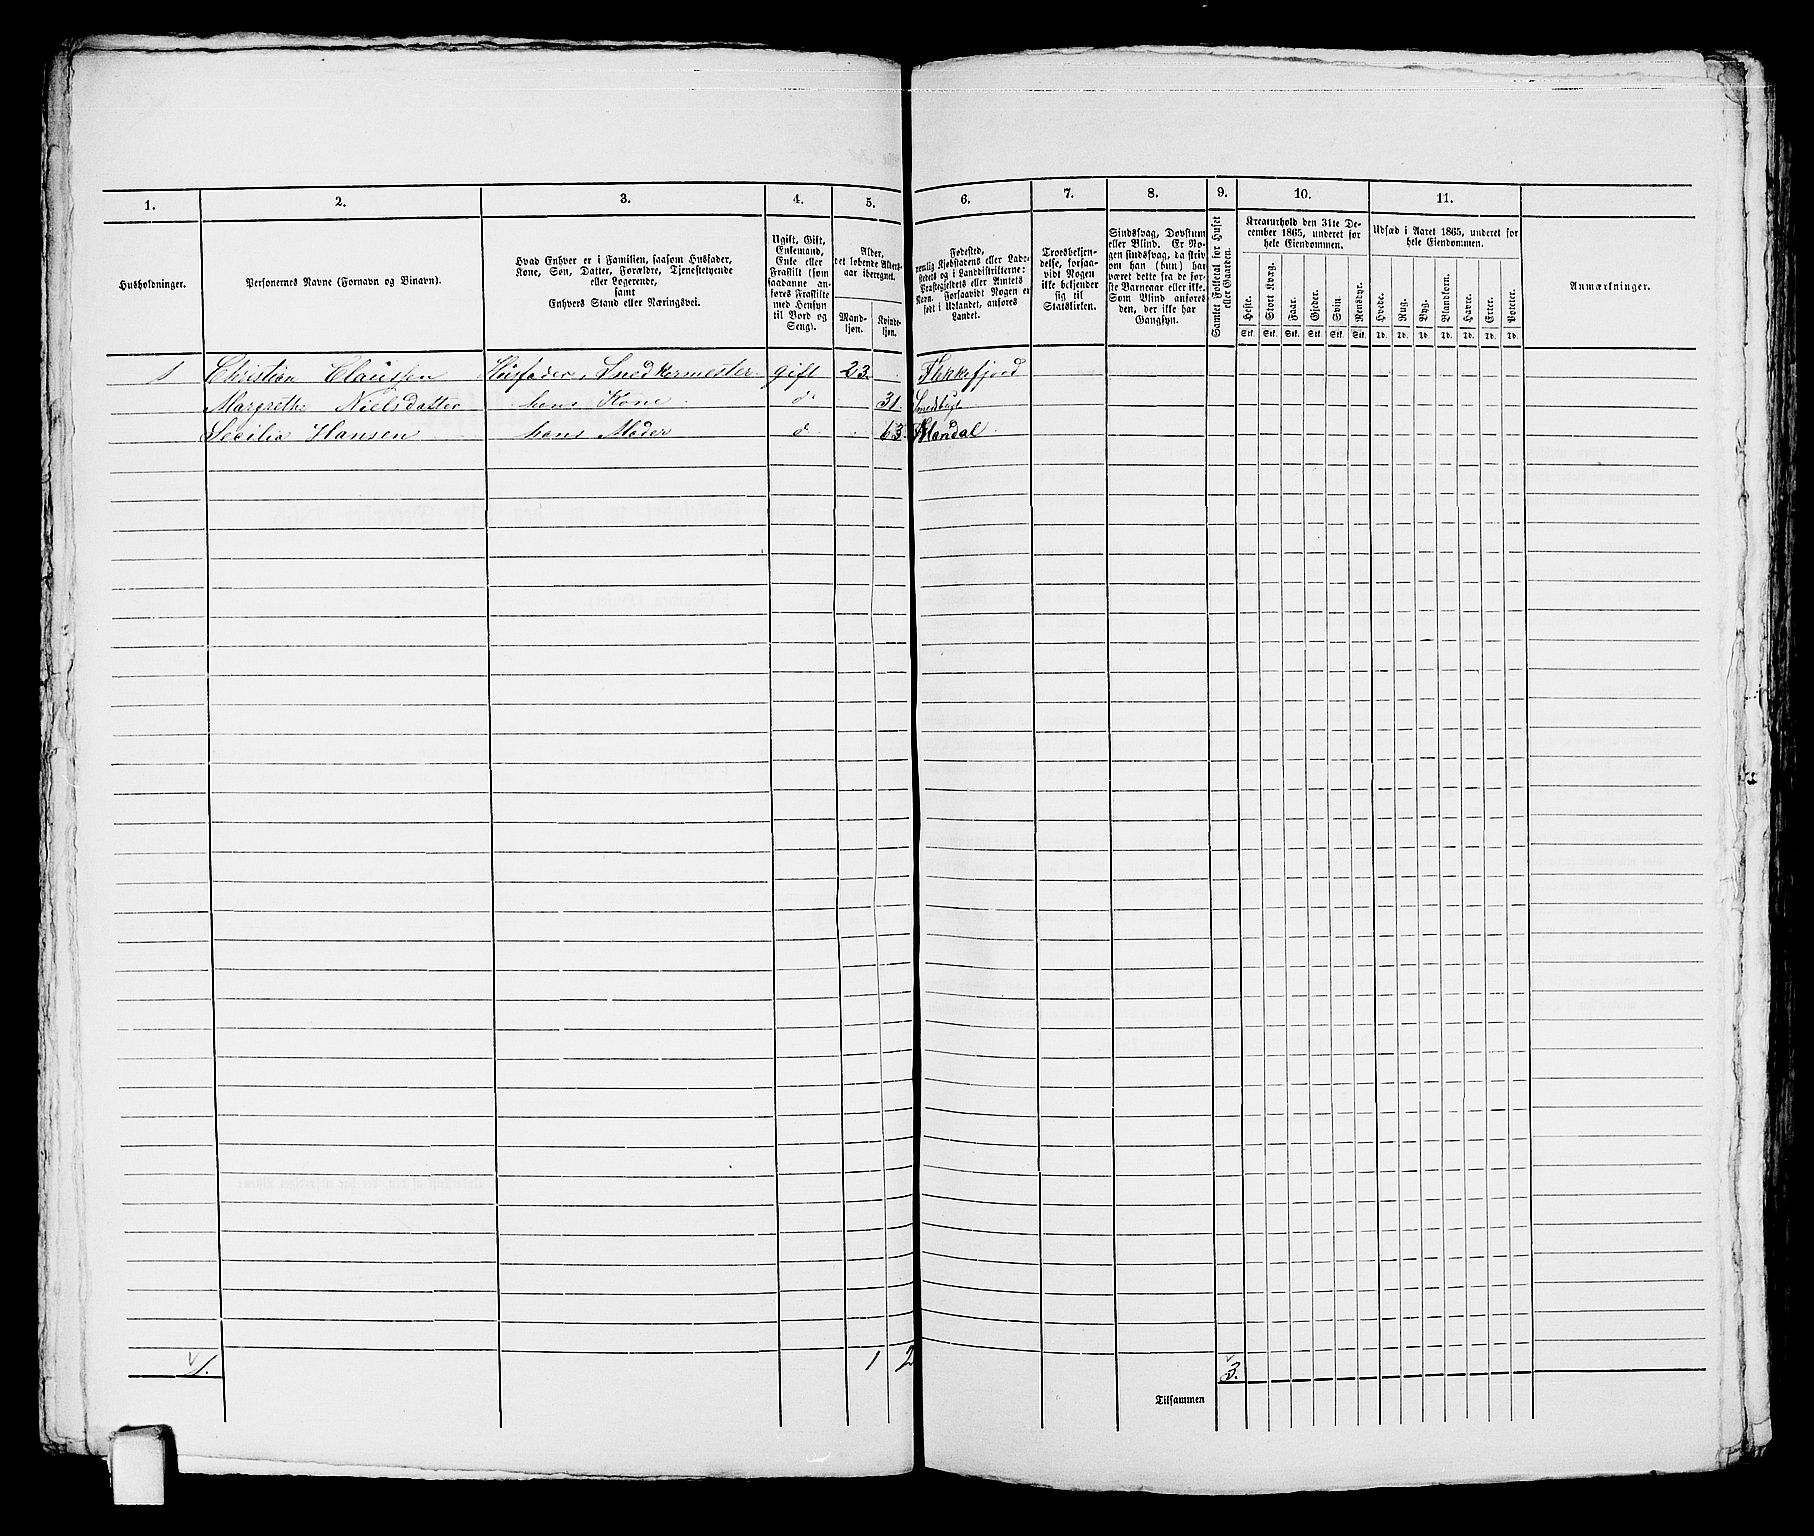 1. 2. 3. 4. 5. 6. 7. 8. 9. 10. 11.
Husholdninger.
Personernes Navne (Fornavn og Binavn).
Hvad Enhver er i Familien, saasom Husfader,
Kone, Søn, Datter, Forældre, Tjenestetyende
eller Logerende,
samt
Enhvers Stand eller Næringsvei.
Ugift, Gift,
Enkemand,
Enke eller
Fraskilt (som
saadanne an-
føres Fraskilte
med Hensyn
til Bord og
Seng).
Alder,
det løbende Alders-
aar iberegnet.
Mand-
kjøn.
Kvinde-
kjøn.
Fødested,
nemlig Kjøbstadens eller Lade-
stedets og i Landdistrikterne:
Præstegjeldets eller Amtets
Navn. Forsaavidt Nogen er
født i Udlandet, anføres
Landet.
Troesbekjen-
delse, forsaa-
vidt Nogen
ikke bekjender
sig til
Statskirken.
Sindssvag, Døvstum
eller Blind. Er No-
gen sindssvag, da skriv
om han (hun) har
været dette fra de før-
ste Barneaar eller ikke.
Som Blind anføres
den, der ikke har
Gangsyn.
Samlet Folketal for Huset
eller Gaarden.
Kreaturhold den 31te De-
cember 1865, underet for
hele Eiendommen.
Heste. Stort Kvæg. Faar. Gjeder. Svin. Rensdyr.
Stk. Stk. Stk. Stk. Stk. Stk.
Udsæd i Aaret 1865, underet for
hele Eiendommen.
Hvede. Rug. Byg. Blandkorn. Havre. Erter. Poteter.
Td. Td. Td. Td. Td. Td. Td.
Anmærkninger.
1 Christian Claussen Husfader, Snedkermester gift 23. Flekkefjord
Margrethe Nielsdatter hans Kone d° 31. Smedbugt
Secilia Hansen hans Moder d° 63. Mandal
1. 1 2 3.
Tilsammen